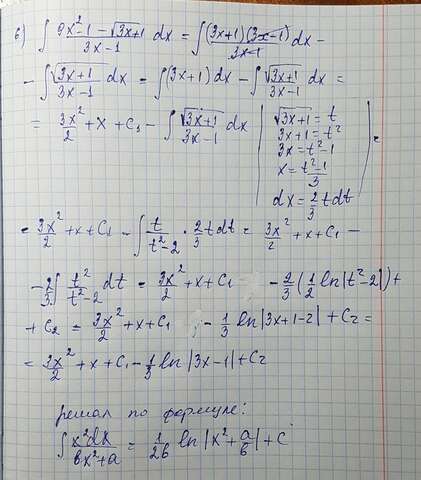 6) ∫ (9x²-1-√(3x+1))/(3x-1) dx = ∫ ((3x+1)(3x-1))/(3x-1) dx -
- ∫ √(3x+1)/(3x-1) dx = ∫(3x+1)dx - ∫ √(3x+1)/(3x-1) dx =
= 3x²/2 + x + C₁ - ∫ √(3x+1)/(3x-1) dx | √(3x+1) = t
3x+1 = t²
3x = t²-1
x = (t²-1)/3
dx = 2/3 t dt | =
= 3x²/2 + x + C₁ - ∫ t/(t²-2) · 2/3 t dt = 3x²/2 + x + C₁ -
- 2/3 ∫ t²/(t²-2) dt = 3x²/2 + x + C₁ - 2/3 (1/2 ln|t²-2|) +
+ C₂ = 3x²/2 + x + C₁ - 1/3 ln|3x+1-2| + C₂ =
= 3x²/2 + x + C₁ - 1/3 ln|3x-1| + C₂
решал по формуле:
∫ x²dx/(bx²+a) = 1/2b ln|x²+a/b| + C